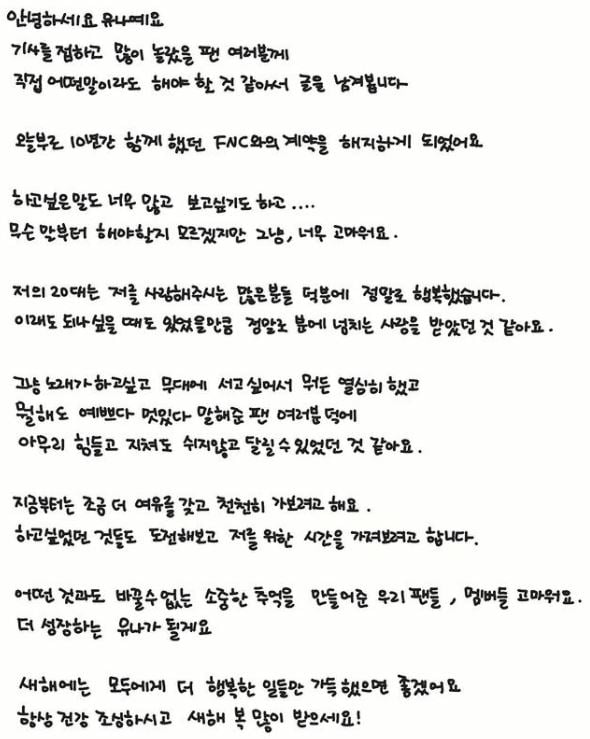 안녕하세요 유나예요
기사를 접하고 많이 놀랐을 팬 여러분께
직접 어떤말이라도 해야 할 것 같아서 글을 남겨봅니다
오늘부로 10년간 함께 했던 FNC와의 계약을 해지하게 되었어요
하고싶은말도 너무 많고 보고싶기도 하고....
무슨 말부터 해야할지 모르겠지만 그냥, 너무 고마워요.
저의 20대는 저를 사랑해주시는 많은분들 덕분에 정말로 행복했습니다.
이래도 되나 싶을 때도 있었을만큼 정말로 분에 넘치는 사랑을 받았던 것 같아요.
그냥 노래가 하고싶고 무대에 서고 싶어서 뭐든 열심히 했고
뭘해도 예쁘다 멋있다 말해준 팬 여러분 덕에
아무리 힘들고 지쳐도 쉬지않고 달릴 수 있었던 것 같아요.
지금부터는 조금 더 여유를 갖고 천천히 가보려고 해요.
하고싶었던 것들도 도전해보고 저를 위한 시간을 가져보려고 합니다.
어떤 것과도 바꿀수 없는 소중한 추억을 만들어준 우리 팬들, 멤버들 고마워요.
더 성장하는 유나가 될게요
새해에는 모두에게 더 행복한 일들만 가득했으면 좋겠어요
항상 건강 조심하시고 새해 복 많이 받으세요!